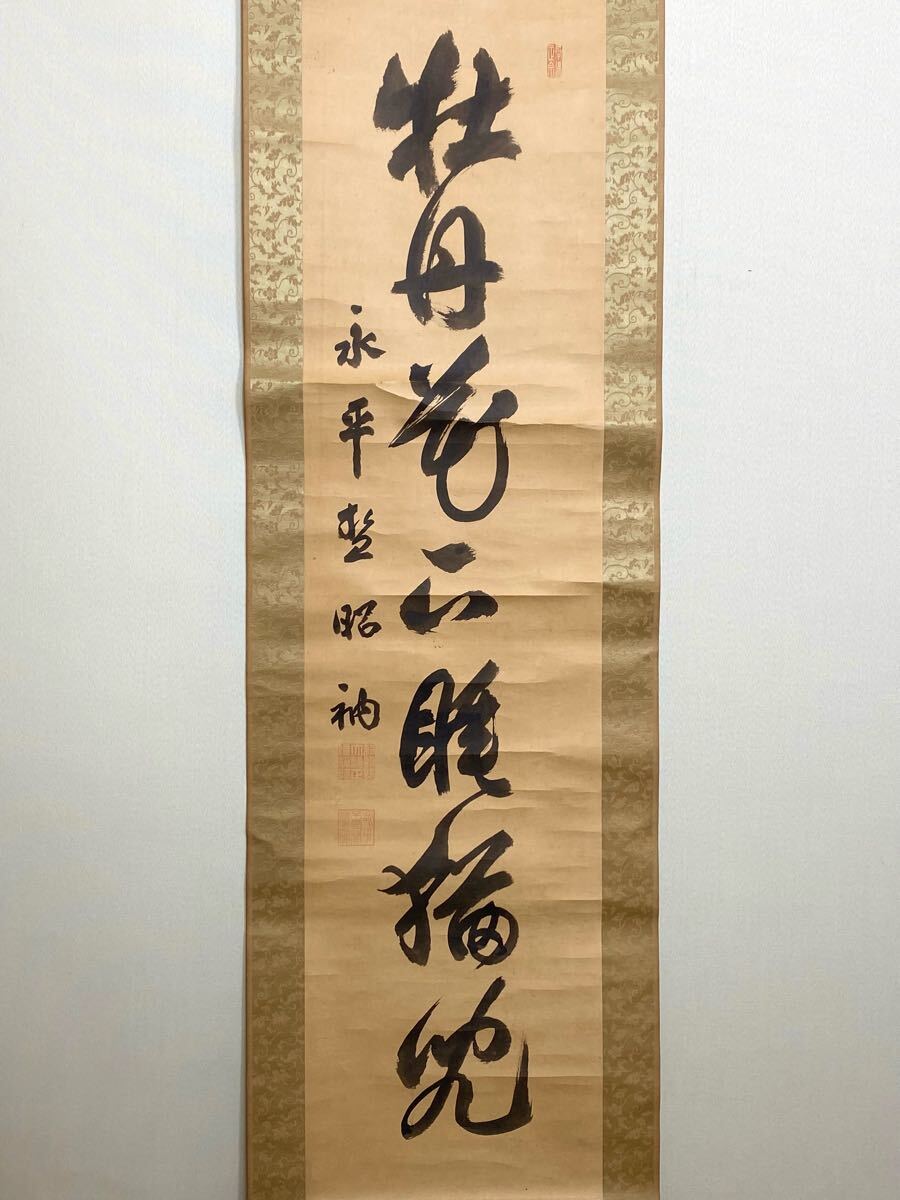 牡丹花下睡猫児
永平悟昭衲